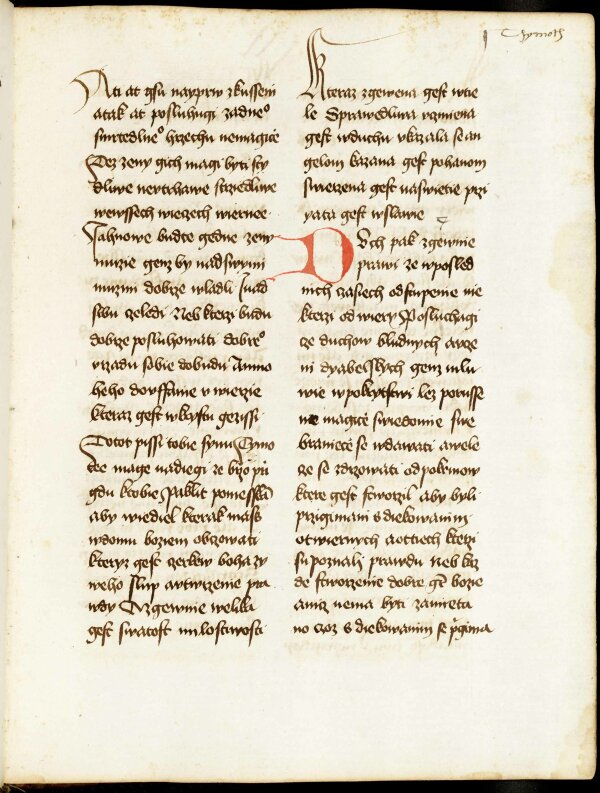 Tymoth
Ati at gsu nayprw zkusseni
a tak at posluhugi zadneo
smrtedlneo hrzechu nemagice
Tez zeny gich magi byti sty
dliwe neutrhawe strziedliwe
wewssech wiezech wierne
Jahnowe budte gedne zeny
muzie genz by nad swymi
muzmi dobrze wladli
swu czeledi Neb kterzi budu
dobrze posluhowati dobreo
rzadu sobie dobudu
heho douffanie u wierzie
kteraz gest w kristu gezissi
Totot pissi tobie synu Tymo
tee mage nadiegi ze brzo przi
gdu k tobie Paklit pomesskam
aby wiediel kterak mass
w domu boziem obcowati
kteryz gest cerkew boha zy
weho slup a utwrzenie pra
wdy A zgewnie welika
gest swatost milostiwosti
kteraz zgewena gest w tie
le Sprawedliwa uczinena
gest w duchu ukazala se an
gelom kazana gest pohanom
swierzena gest na swietie przi
yata gest w slawie
Duch pak zgewnie
prawi ze w posled
nich czasiech odstupenie nie
kterzi od wiery Posluchagi
ce duchow bludnych a ucze
ni dyabelskych genz mlu
wie w pokrytstwi lez porusse
ne magice swiedomie swe
braniece se wdawati a wele
ce se zdrzowati od pokrmow
ktere gest stworzil aby byli
przigimani s diekowanim
ot wiernych a ot tiech kterzi
su poznali prawdu neb kaz
de stworzenie dobre ge bozie
aniz nema byti zamieta
no czoz s diekowanim se prigima